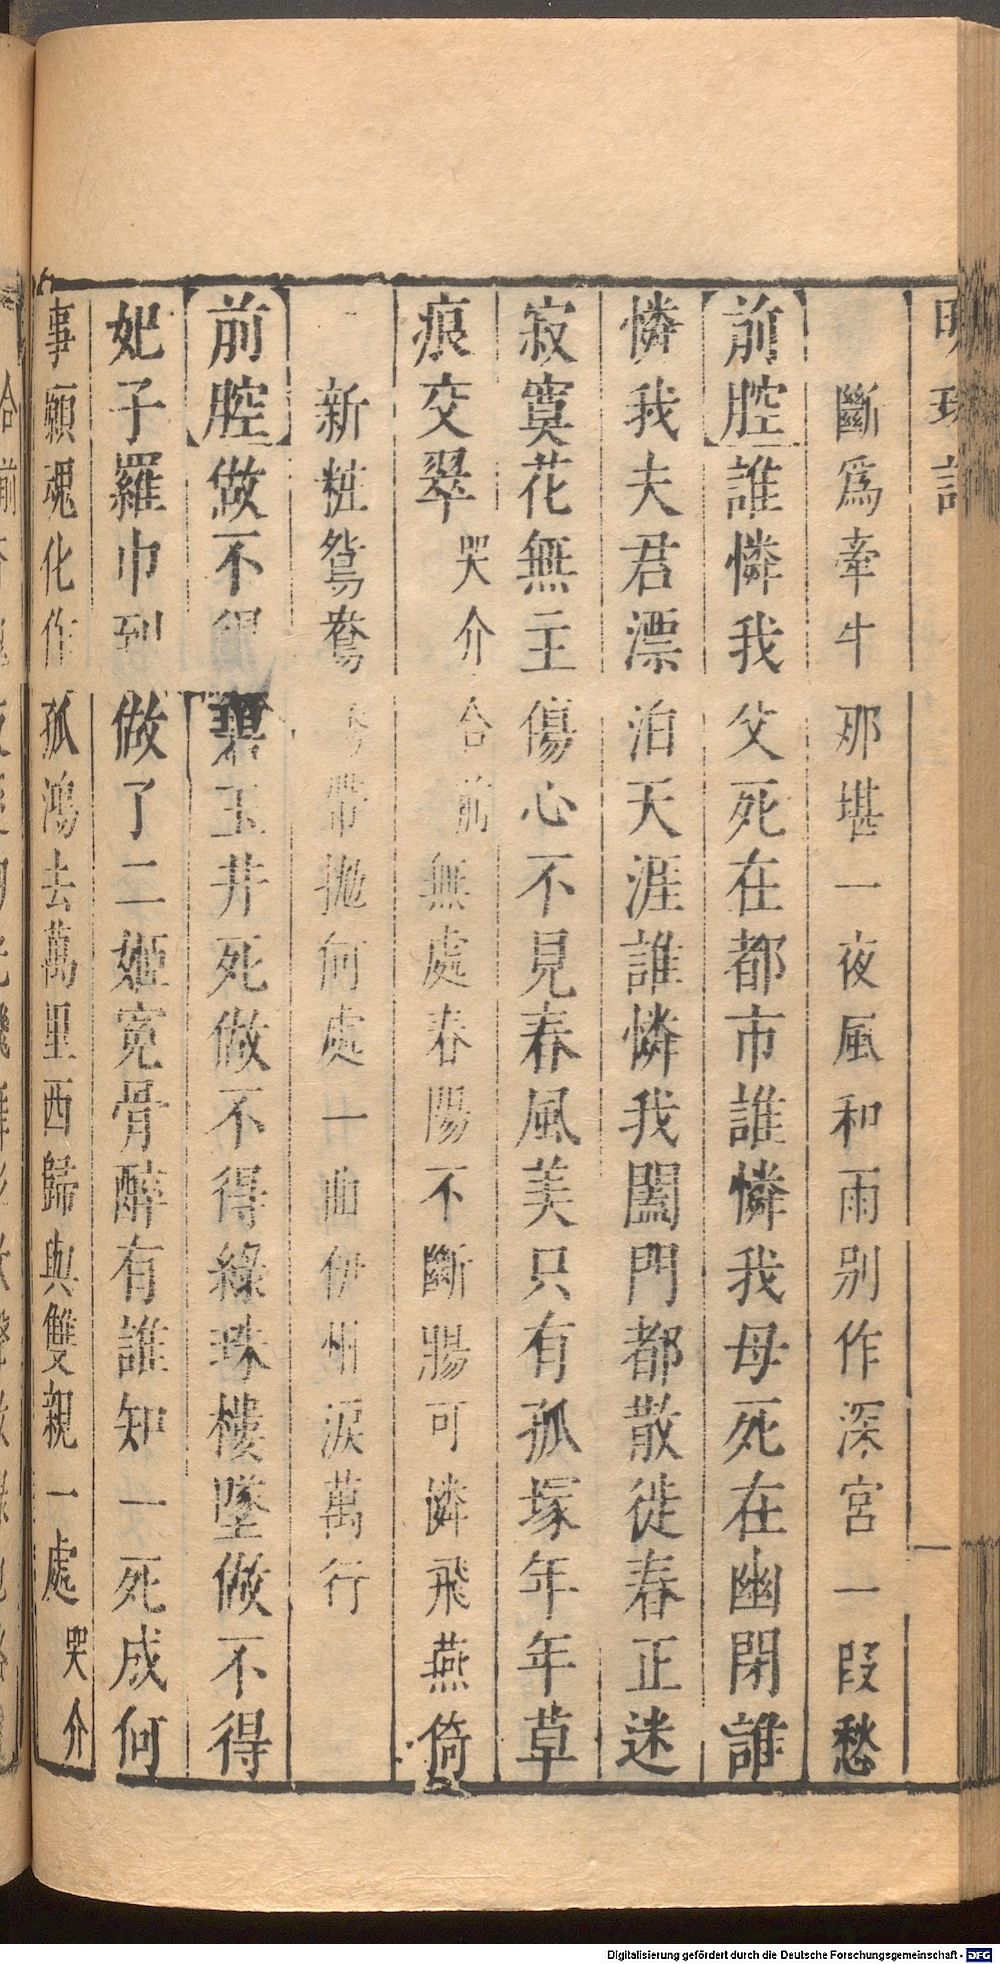 明珠記
斷爲牽牛那堪一夜風和雨别作深宮一段愁
前腔誰憐我父死在都市誰憐我母死在幽閉誰
憐我夫君漂泊天涯誰憐我闔門都散徙春正迷
寂寞花無主傷心不見春風美只有孤塚年年草
痕交翠哭介合前無處春陽不斷腸可憐飛燕倚
新粧鴛鴦帶拋何處一曲伊州淚萬行
前腔做不得碧玉井死做不得綠珠樓墜做不得
妃子羅巾到做了二姬寃骨醉有誰知一死成何
事願魂化作孤鴻去萬里西歸與雙親一處哭介
Digitalisierung gefördert durch die Deutsche Forschungsgemeinschaft - DFG